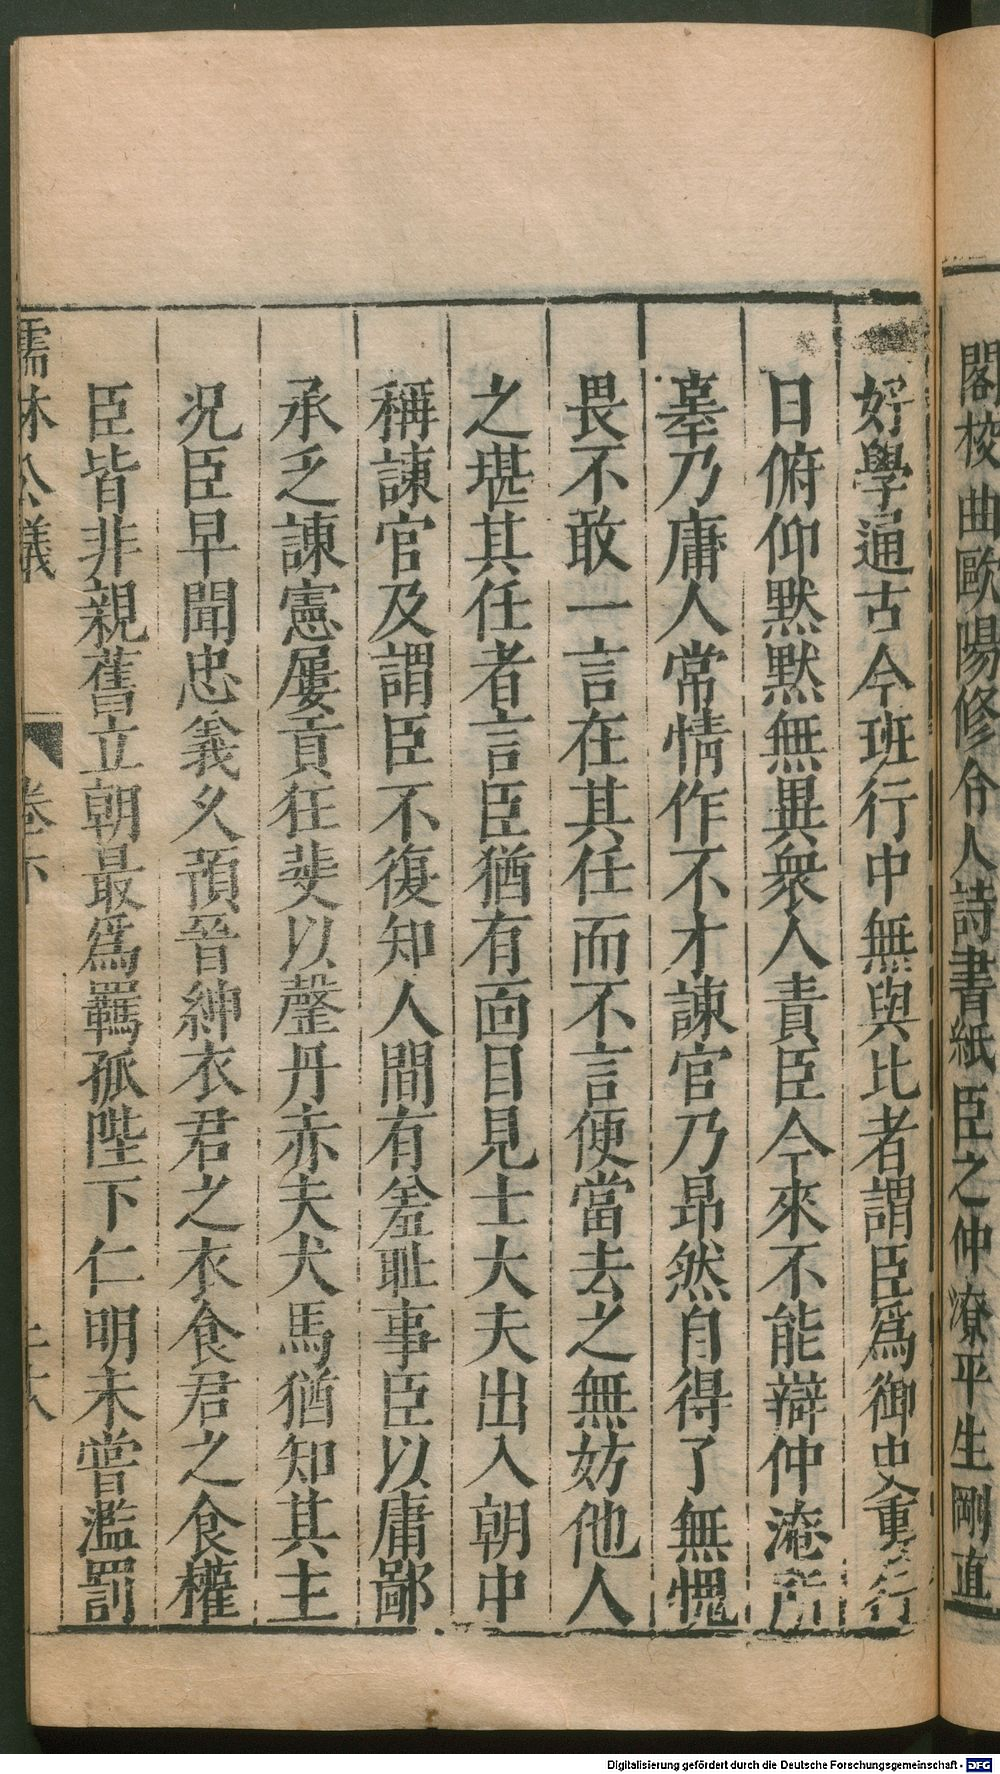 閣校 曲歐陽修令人詩書紙臣之仲潦平生剛直
好學通古今班行中無與比者謂臣爲御史重行
日俯仰黙黙無異衆人責臣今來不能辯仲淹所
辜乃庸人常情作不才諫官乃昻然自得了無愧
畏不敢一言在其任而不言便當去之無妨他人
之堪其任者言臣猶有面目見士大夫出入朝中
稱諫官及謂臣不復知人間有羞耻事臣以庸鄙
承乏諫憲屢貢狂斐以罄丹赤夫犬馬猶知其主
况臣早聞忠義久預晉紳衣君之衣食君之食權
臣皆非親舊立朝最爲羈孤陛下仁明未嘗濫罰
儒林公議
卷下
Digitalisierung gefördert durch die Deutsche Forschungsgemeinschaft - DFG